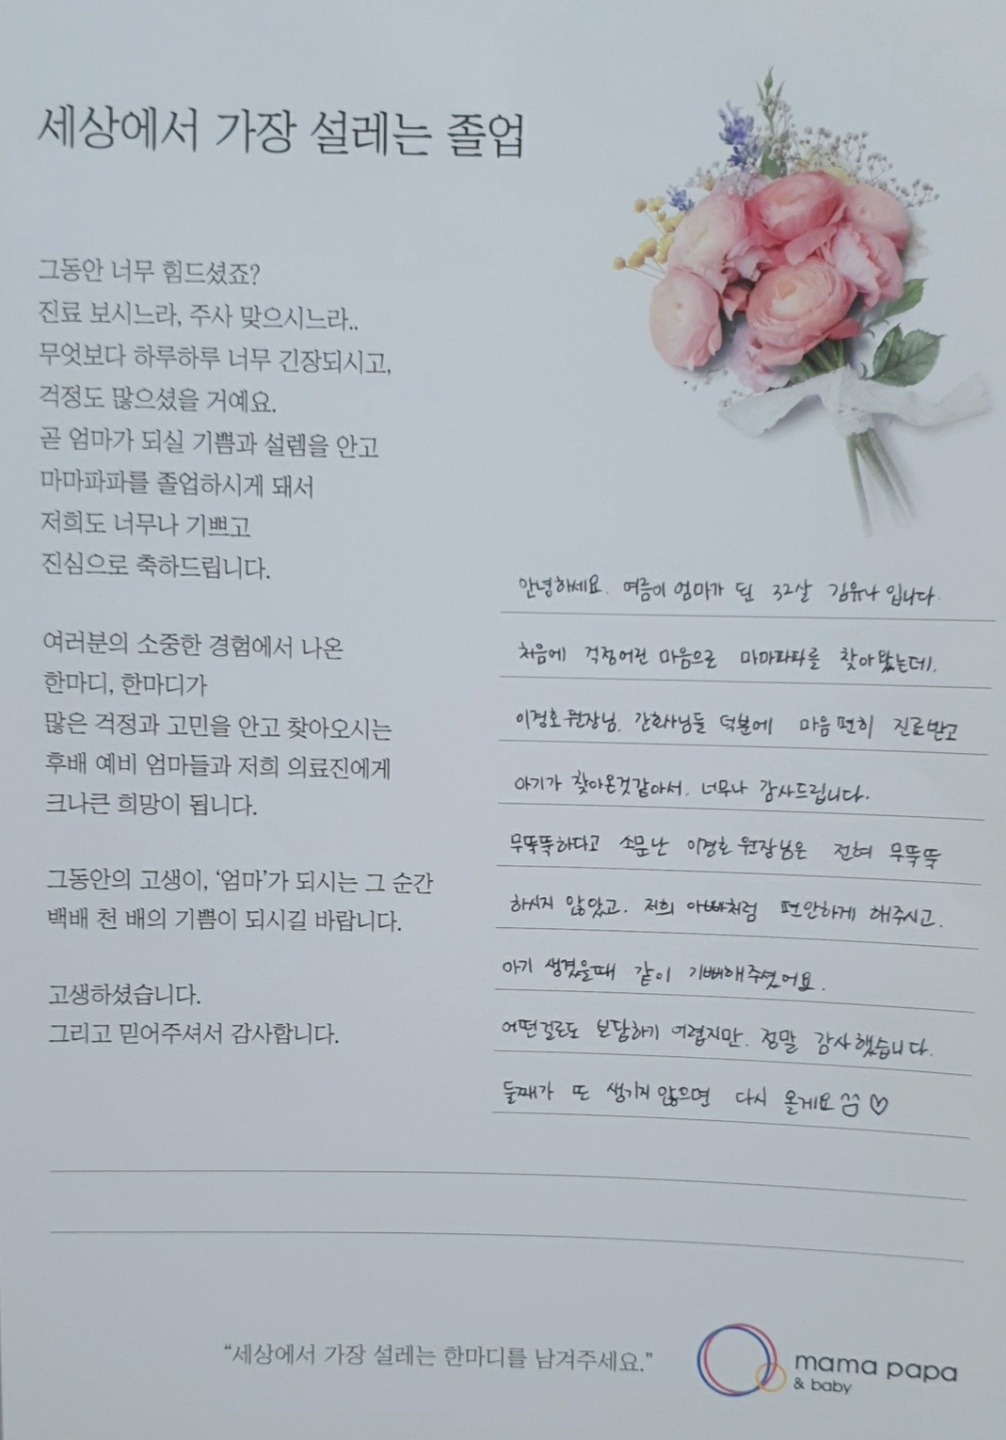 세상에서 가장 설레는 졸업
그동안 너무 힘드셨죠?
진료 보시느라, 주사 맞으시느라..
무엇보다 하루하루 너무 긴장되시고,
걱정도 많으셨을 거예요.
곧 엄마가 되실 기쁨과 설렘을 안고
마마파파를 졸업하시게 돼서
저희도 너무나 기쁘고
진심으로 축하드립니다.
여러분의 소중한 경험에서 나온
한마디, 한마디가
많은 걱정과 고민을 안고 찾아오시는
후배 예비 엄마들과 저희 의료진에게
크나큰 희망이 됩니다.
그동안의 고생이, ‘엄마’가 되시는 그 순간
백배 천 배의 기쁨이 되시길 바랍니다.
고생하셨습니다.
그리고 믿어주셔서 감사합니다.
안녕하세요. 여름이 엄마가 된 32살 김유나 입니다.
처음에 걱정어린 마음으로 마마파파를 찾아왔는데,
이경호 원장님, 간호사님들 덕분에 마음 편히 진료받고
아기가 찾아온것같아서, 너무나 감사드립니다.
무뚝뚝하다고 소문난 이경호 원장님은 전혀 무뚝뚝
하시지 않았고, 저희 아빠처럼 편안하게 해주시고,
아기 생겼을때 같이 기뻐해주셨어요.
어떤걸로도 보답하기 어렵지만, 정말 감사했습니다.
둘째가 또 생기지 않으면 다시 올게요 ^^ ♡
“세상에서 가장 설레는 한마디를 남겨주세요.”
mama papa
& baby